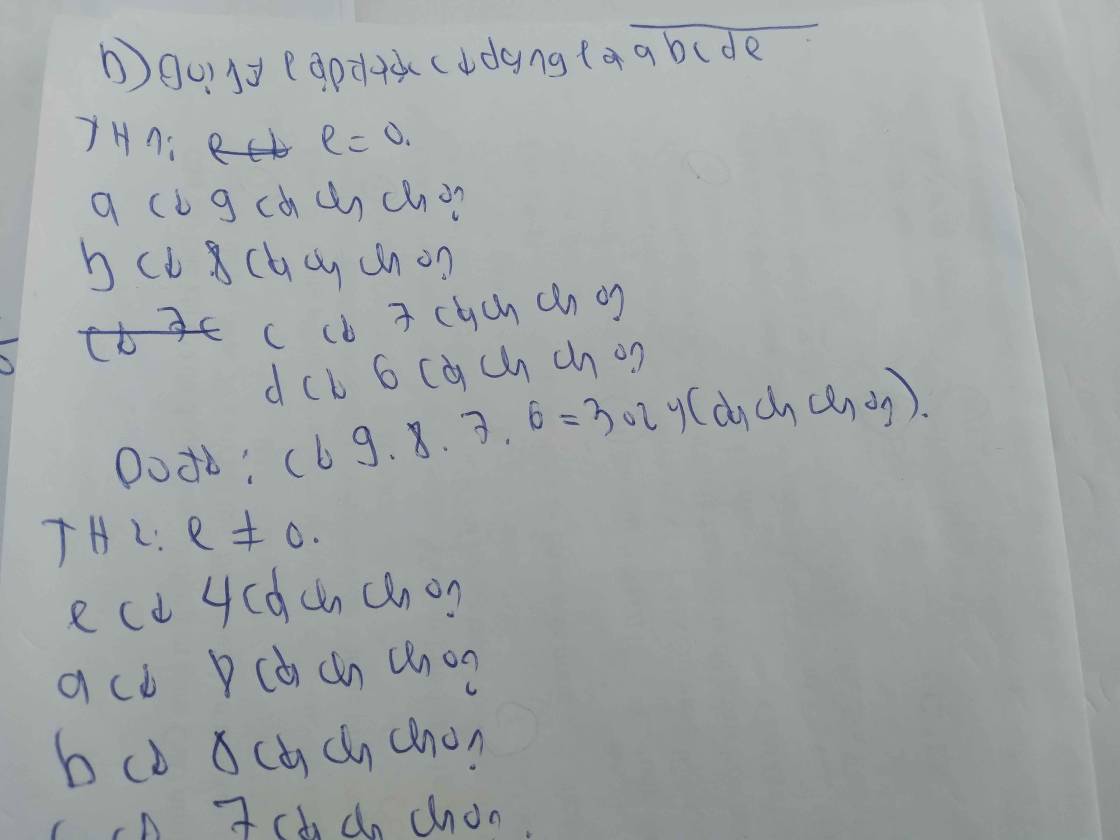 b) gọi số lập được có dạng là abcde
TH1: e có e = 0.
a có 9 cách chọn
b có 8 cách chọn
có 7 c c có 7 cách chọn
d có 6 cách chọn
Do đó: có 9.8.7.6 = 3024 (cách chọn).
TH2: e ≠ 0.
e có 4 cách chọn
a có 8 cách chọn
b có 8 cách chọn
c có 7 cách chọn.